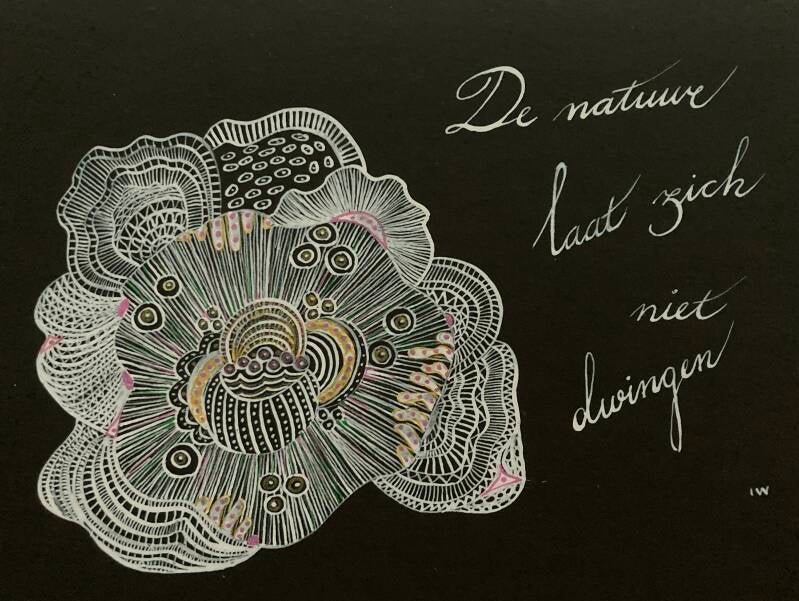 De natuur
laat zich
niet
dwingen
IW